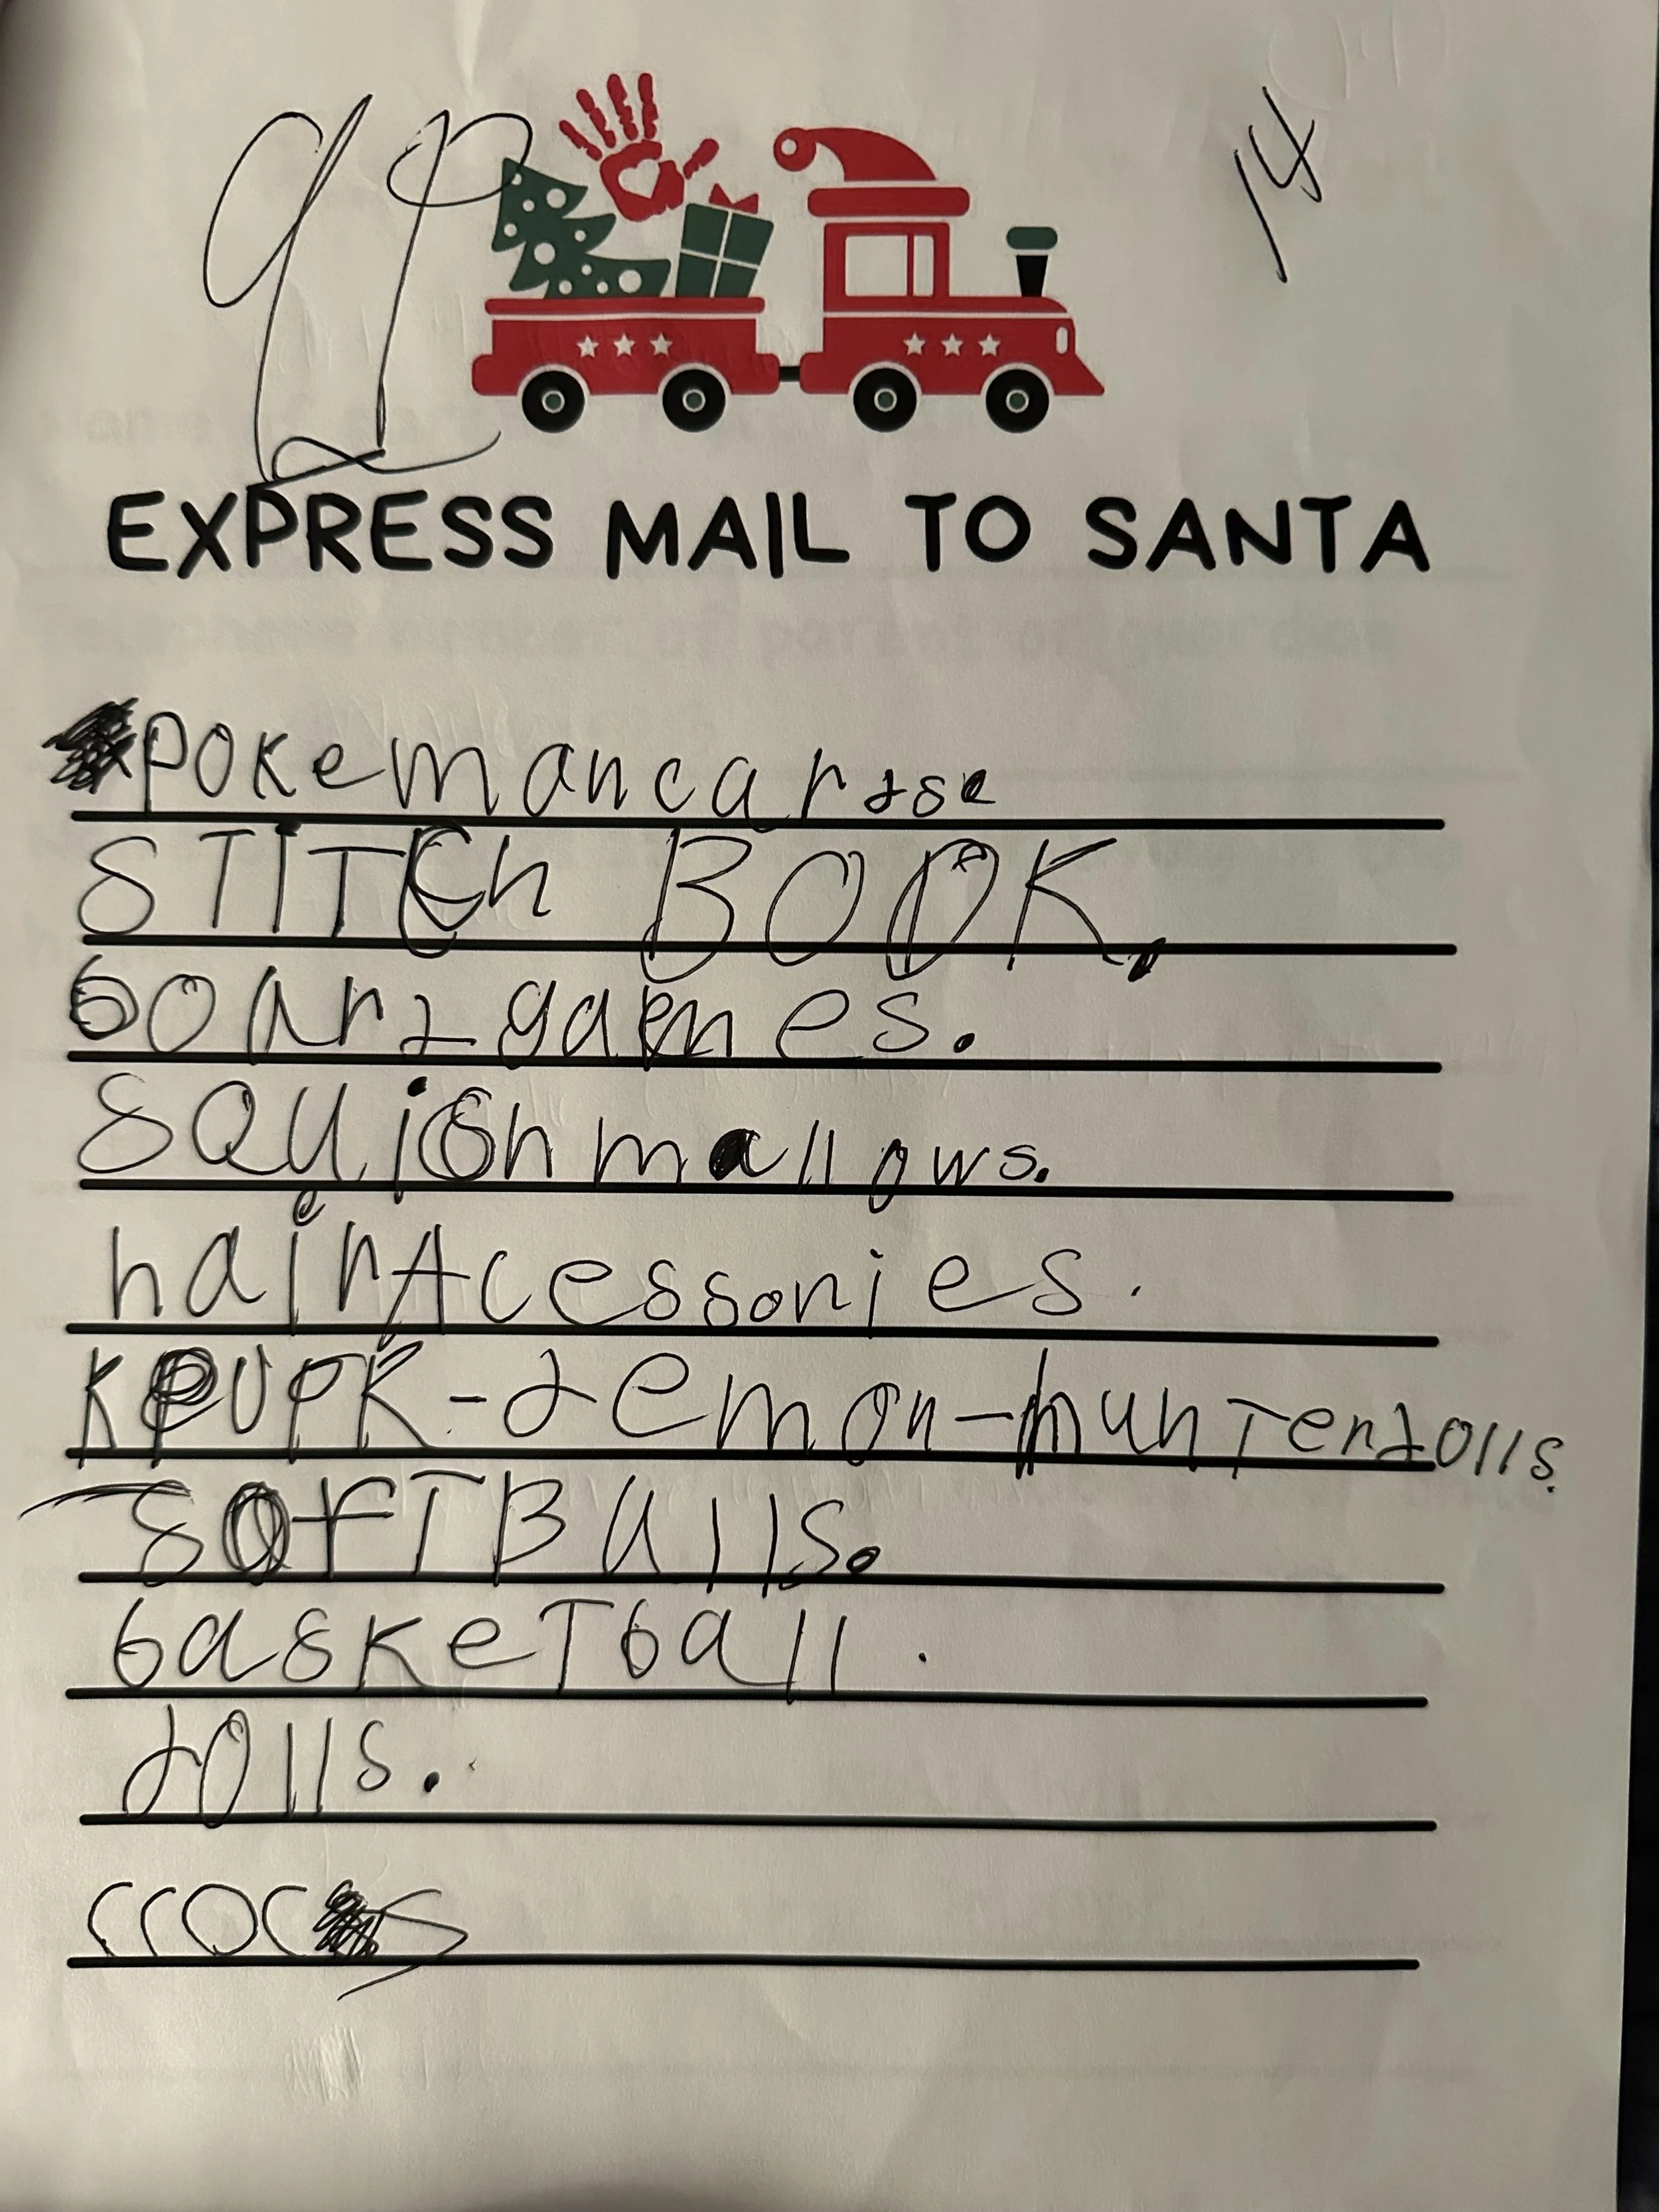 14
EXPRESS MAIL TO SANTA
pokemancardse
STITCh BOOK.
boardgames.
SQUishmallows.
hairAcessories.
KPUPK-demon-hunterdolls.
SOfTBalls.
baskeTball.
dolls.
crocs